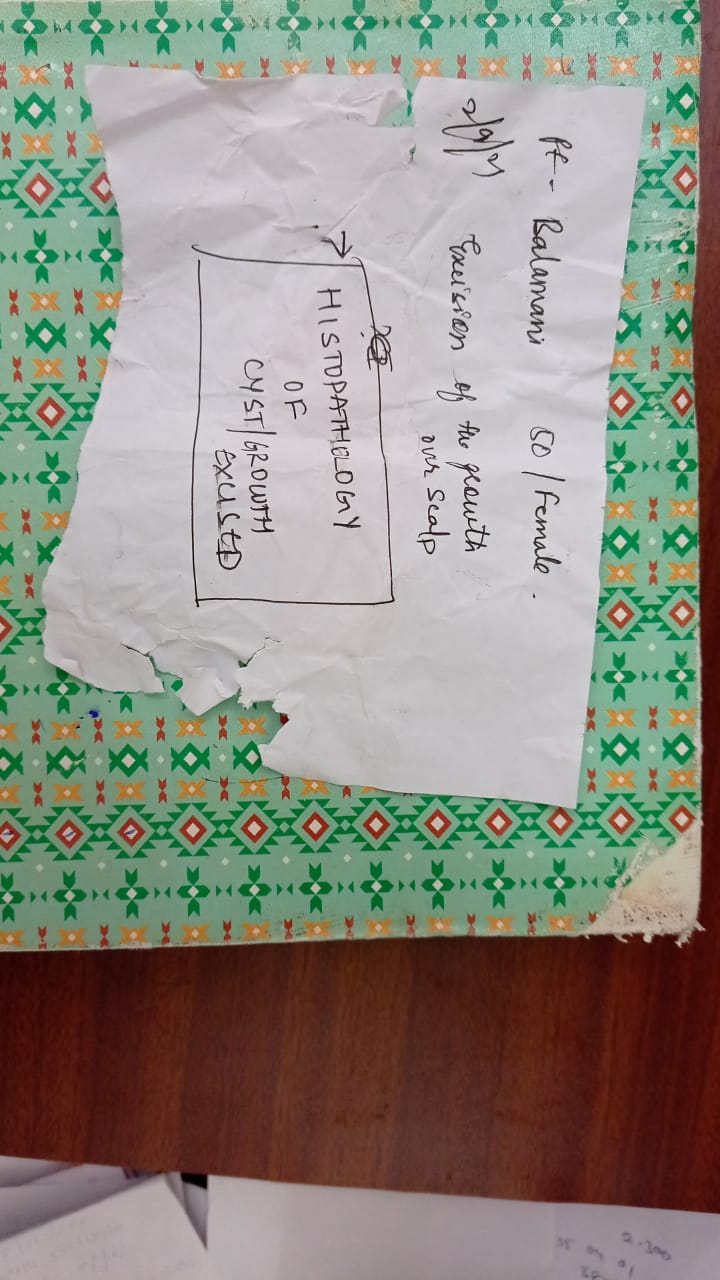 Pt - Balamani 50 / Female.
Excision of the growth
over Scalp
HISTOPATHOLOGY
OF
CYST/GROWTH
EXCISED
2.300